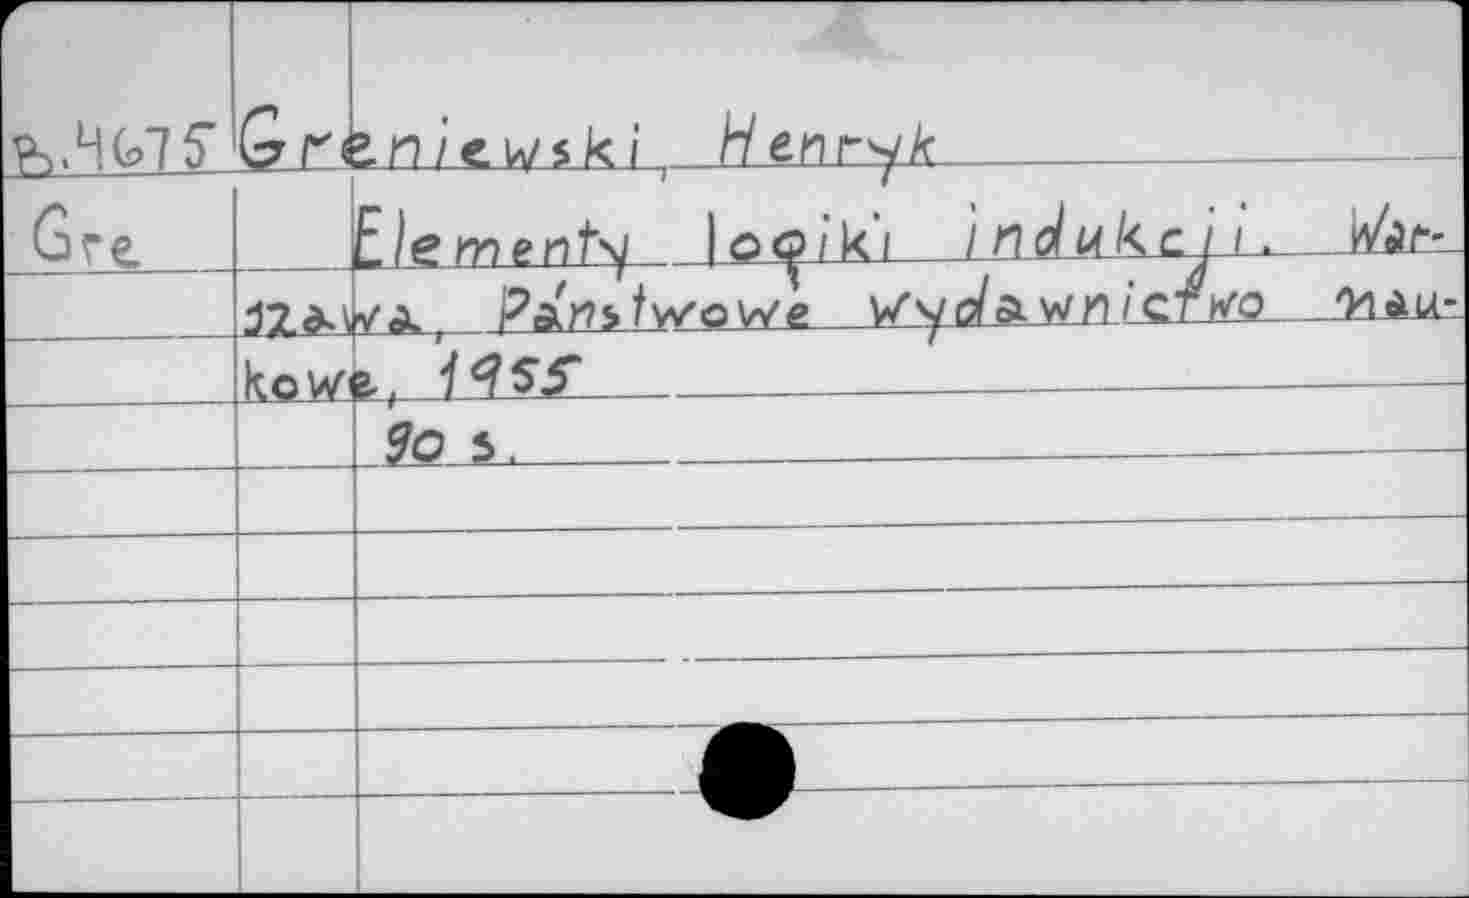 B.4675 Greniewski, Henryk
Gre Elementy logiki indukcji. War-
szawa, Państwowe Wydawnictwo nau-
kowe, 1955
90 s.